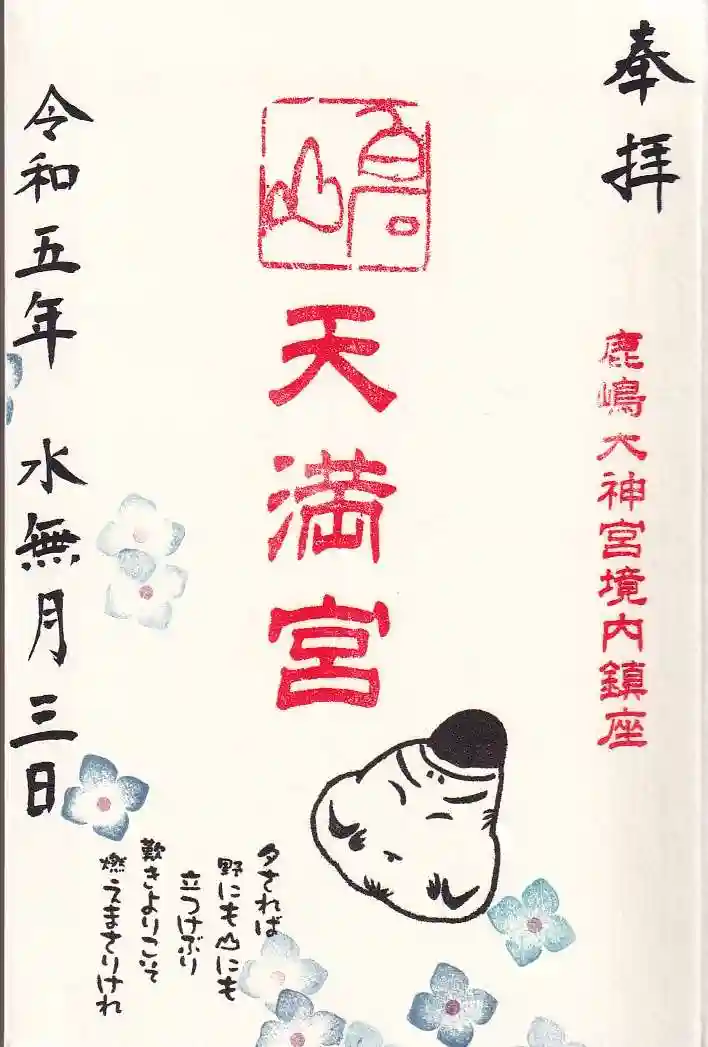 奉拝
鹿嶋大神宮境内鎮座
天満宮
夕されば
野にも山にも
立つけぶり
歎きよりこそ
燃えまさりけれ
令和五年 水無月三日